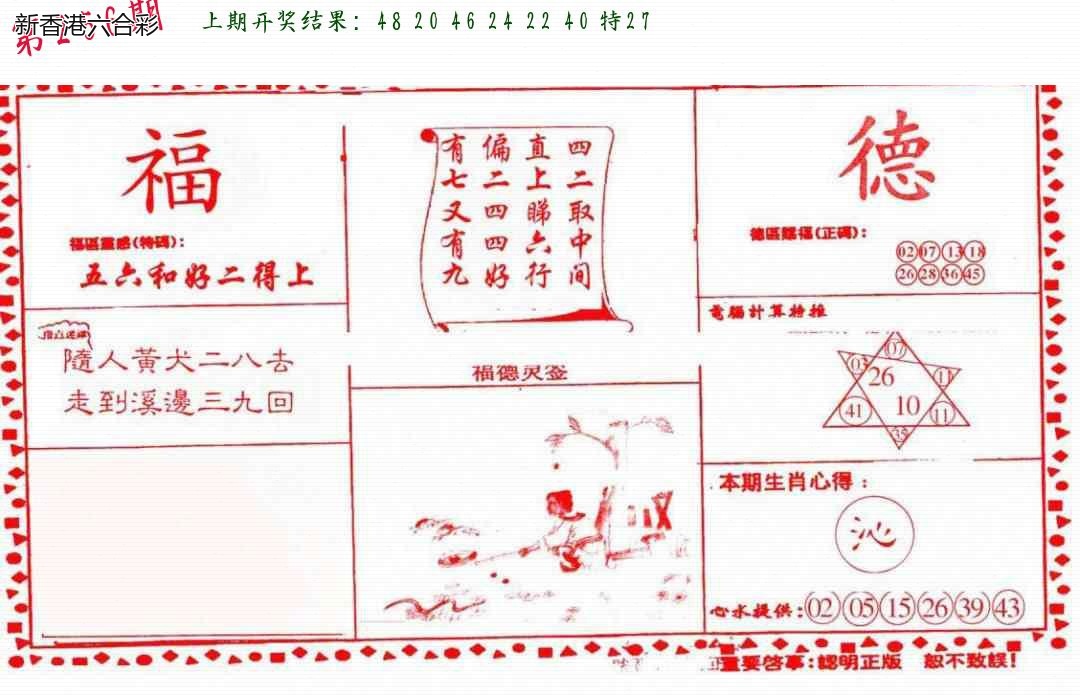 新香港六合彩
上期开奖结果: 48 20 46 24 22 40 特27
福
福區靈感(特碼):
五六和好二得上
四二取中间
直上睇六行
偏二四四好
有七又有九
德
德區賜福(正碼):
02 07 13 18
26 28 36 45
隨人黃犬二八去
走到溪邊三九回
電腦計算特推
07
03 26 11
41 10 11
35
福德灵签
本期生肖心得:
沁
心水提供: 02 05 15 26 39 43
重要啓事:認明正版 恕不致誤!